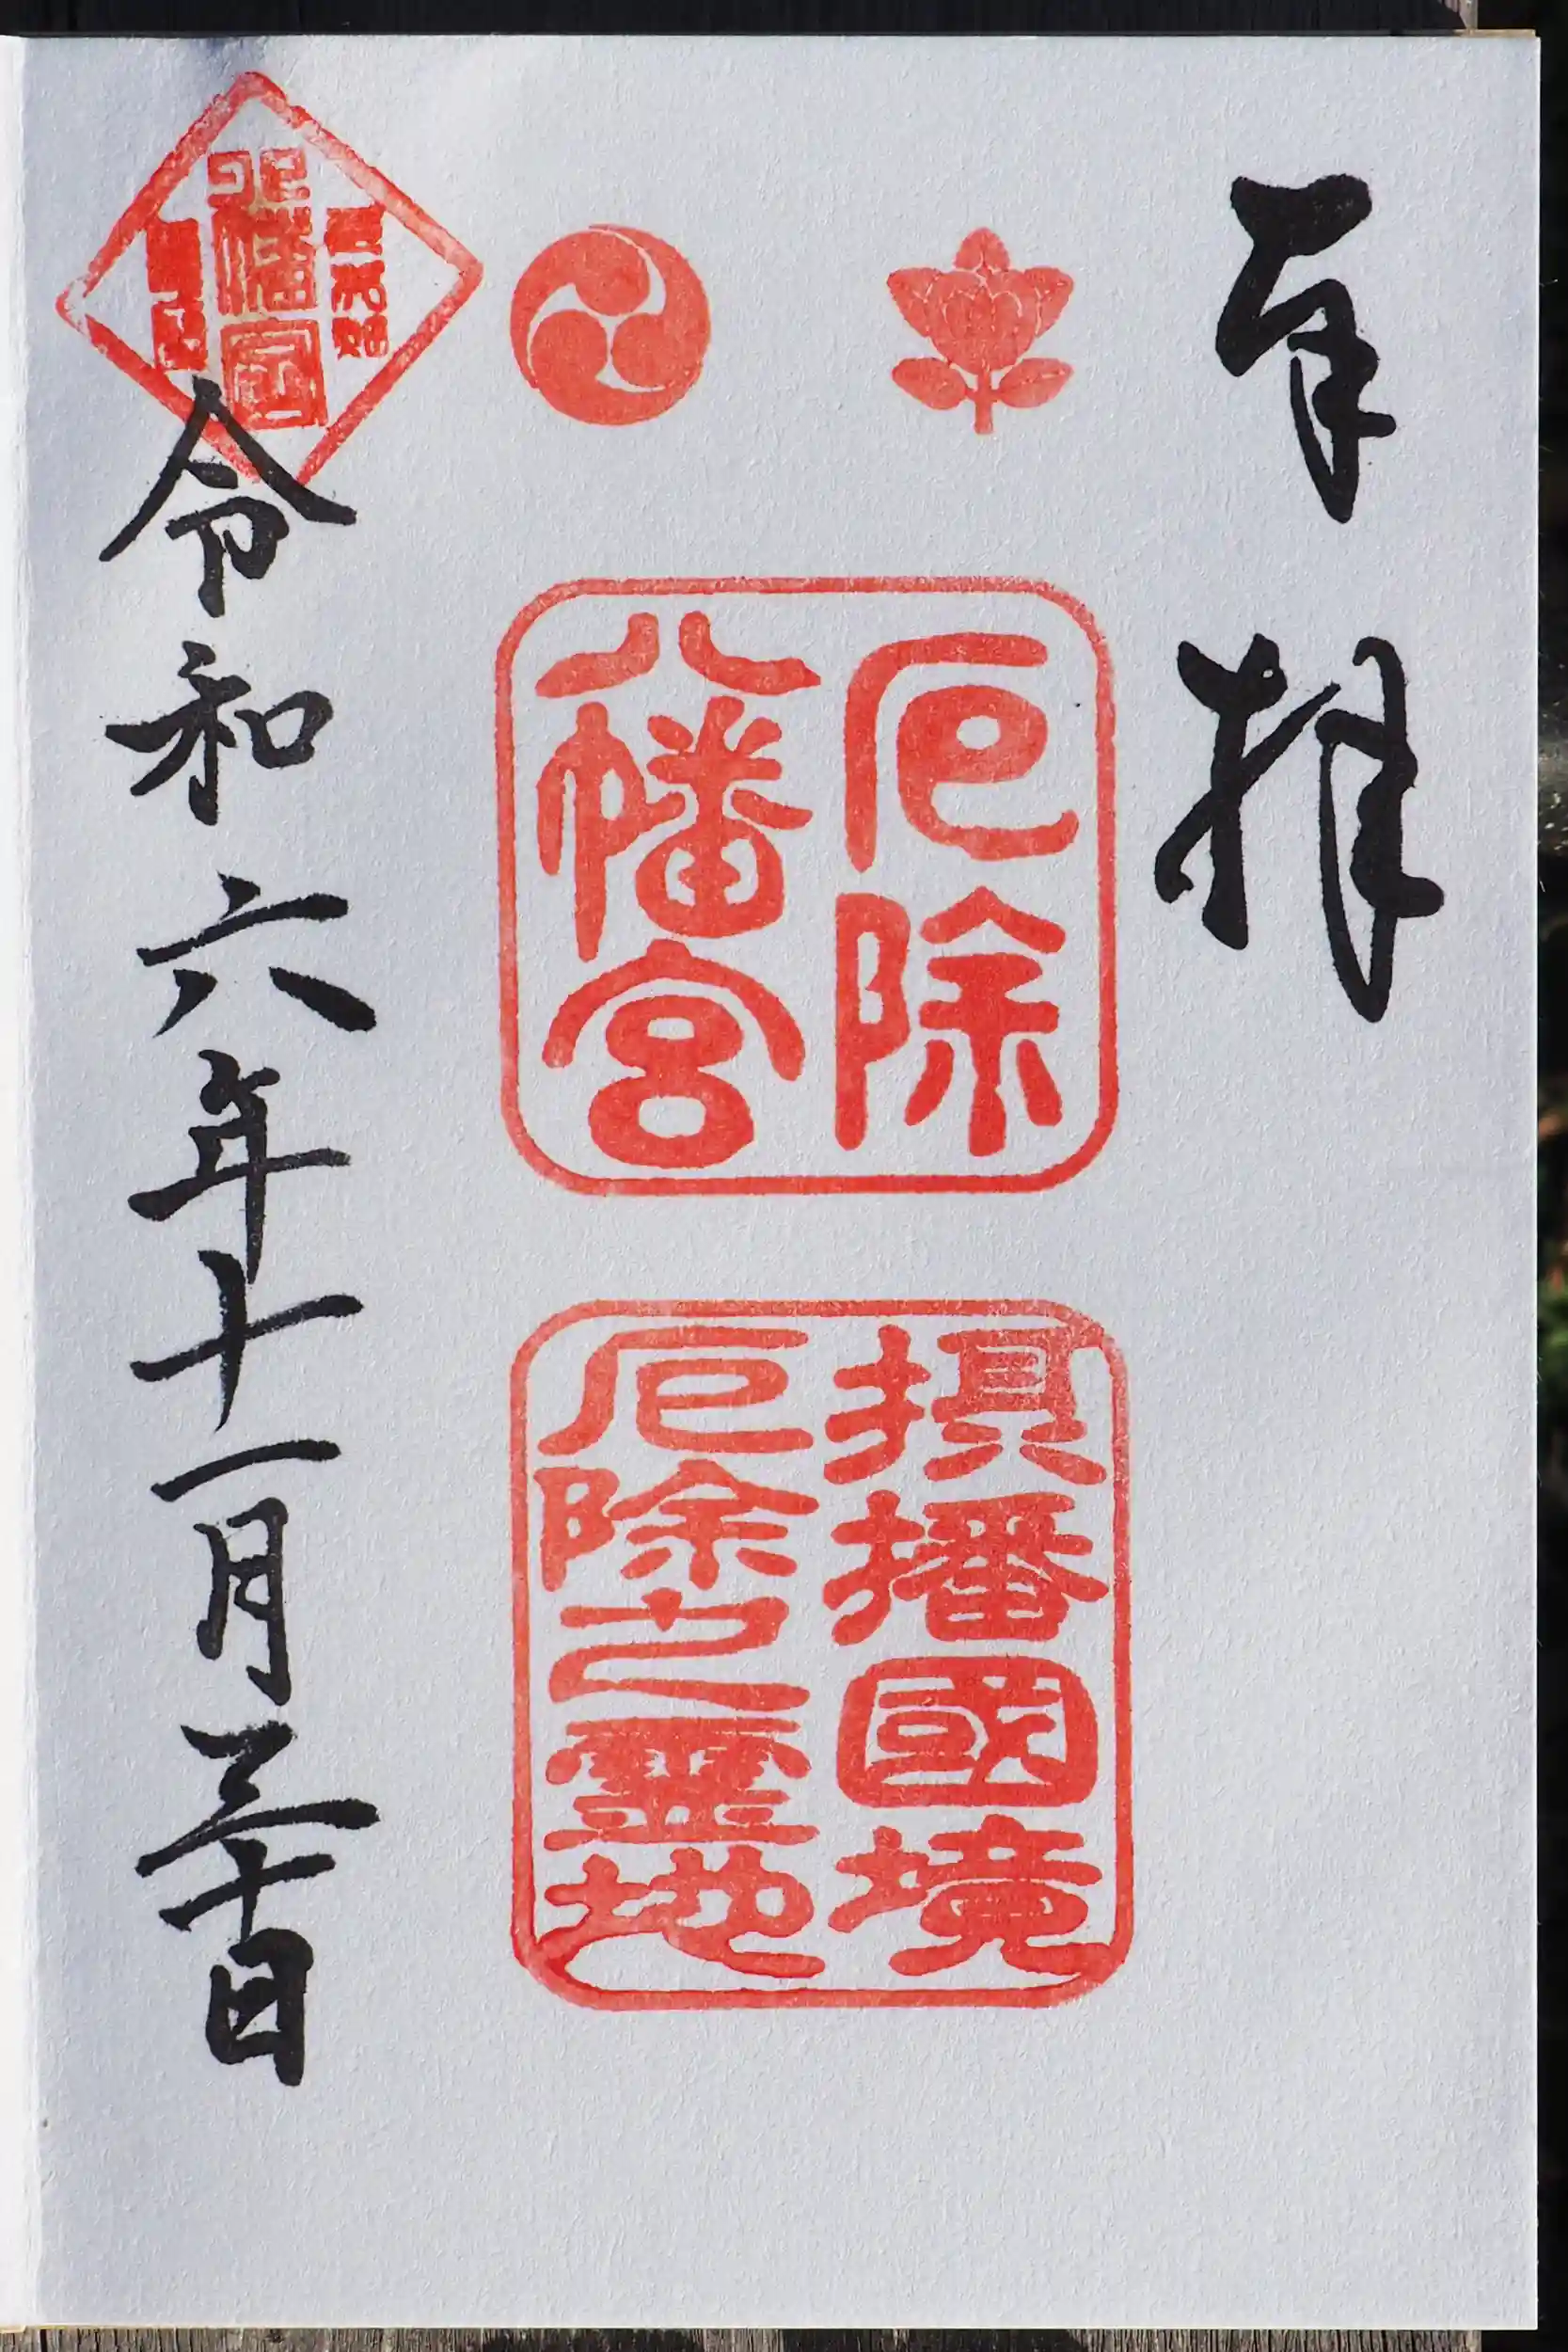 奉拝
厄除
八幡宮
摂播國境
厄除之霊地
八幡宮
令和六年十一月三十日